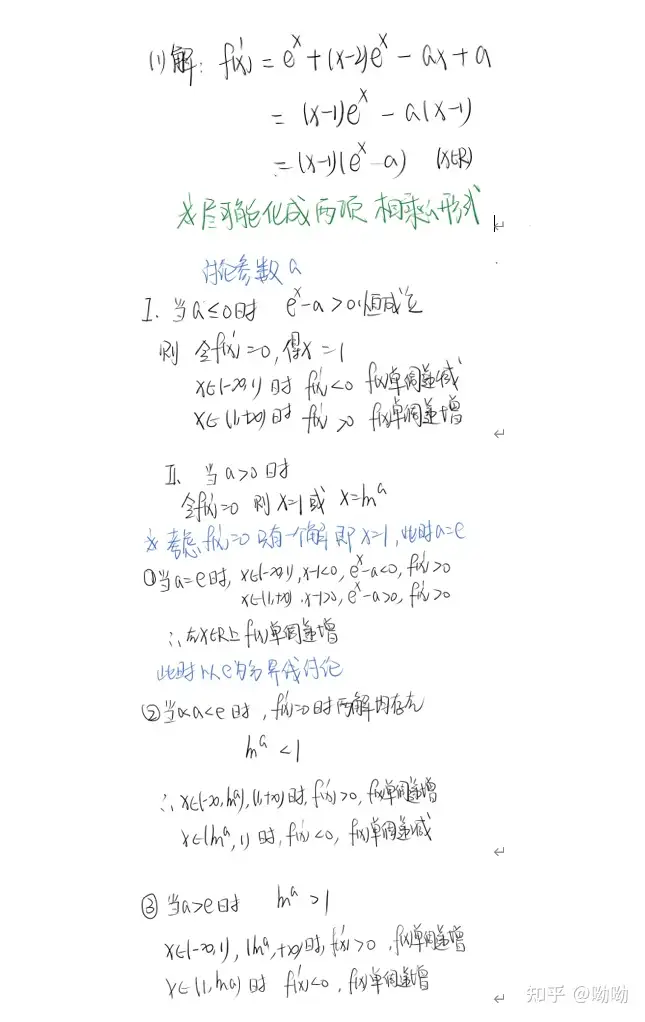 (1)解: f'(x) = e^x + (x-2)e^x - ax + a
= (x-1)e^x - a(x-1)
= (x-1)(e^x - a) (x∈R)
☆尽可能化成两项相乘的形式
讨论参数a
I. 当a≤0时 e^x-a>0恒成立
则 令f'(x)=0,得x=1
x∈(-∞,1)时 f'(x)<0 f(x)单调递减
x∈(1,+∞)时 f'(x)>0 f(x)单调递增
II. 当a>0时
令f'(x)=0 则x=1或 x=ln a
☆考虑f'(x)=0只有一个解即x=1,此时a=e
①当a=e时, x∈(-∞,1), x-1<0, e^x-a<0, f'(x)>0
x∈(1,+∞), x-1>0, e^x-a>0, f'(x)>0
∴在x∈R上f(x)单调递增
此时以e为分界线讨论
②当0<a<e时, f'(x)=0时两解均存在
ln a <1
∴x∈(-∞,ln a),(1,+∞)时,f'(x)>0, f(x)单调递增
x∈(ln a,1)时,f'(x)<0, f(x)单调递减
③当a>e时 ln a >1
x∈(-∞,1), (ln a,+∞)时,f'(x)>0, f(x)单调递增
x∈(1,ln a)时 f'(x)<0, f(x)单调递增
知乎 @呦呦